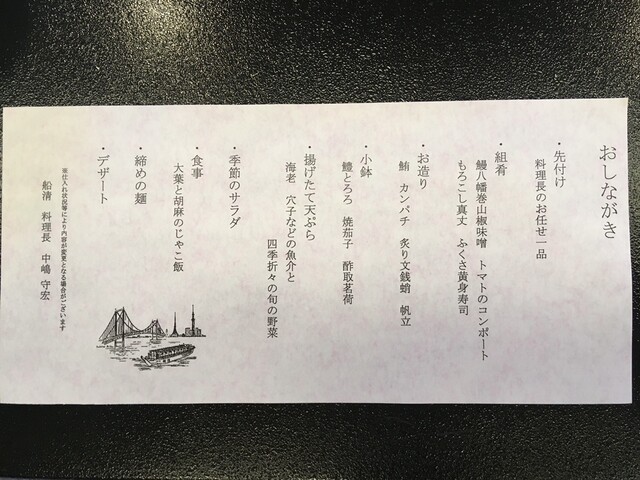 おしながき
・先付け
料理長のお任せ一品
・組肴
鰻八幡巻山椒味噌　トマトのコンポート
もろこし真丈　ふくさ黄身寿司
・お造り
鮪　カンパチ　炙り文銭蛸　帆立
・小鉢
鱧とろろ　焼茄子　酢取茗荷
・揚げたて天ぷら
海老　穴子などの魚介と
四季折々の旬の野菜
・季節のサラダ
・食事
大葉と胡麻のじゃこ飯
・締めの麺
・デザート
※仕入れ状況等により内容が変更となる場合がございます
船清　料理長　中嶋 守宏